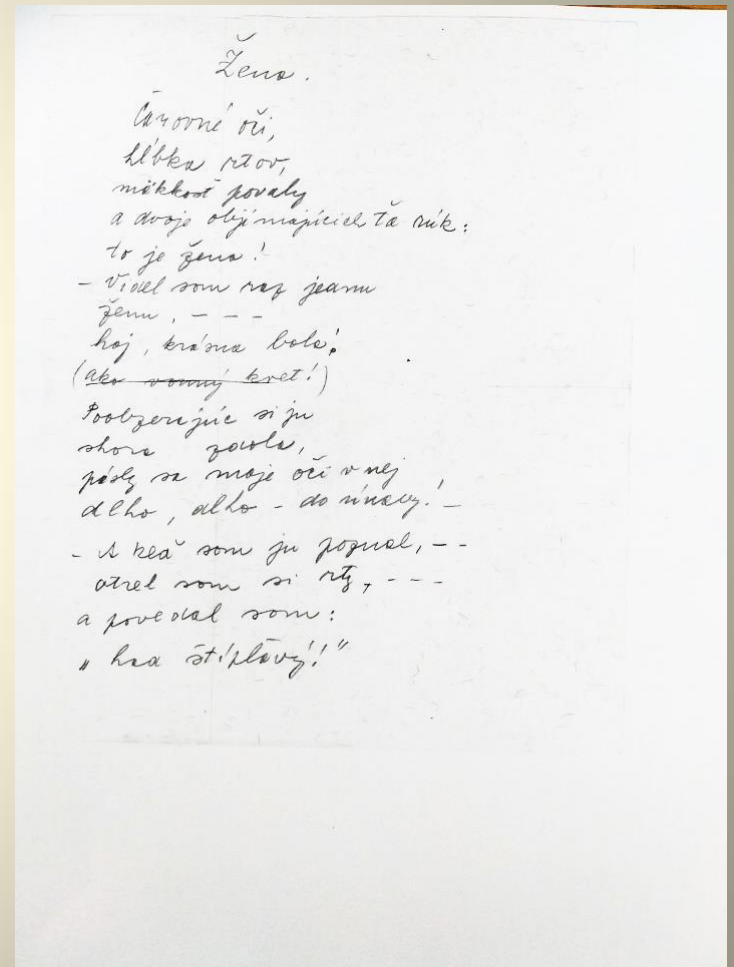 Žena.
Čarovné oči,
hĺbka rtov,
mäkkosť povahy
a dvoje objímajúcich Ťa rúk:
to je žena!
- Videl som raz jednu
ženu, - - -
hoj, krásna bola!
(ako vonný kvet!)
Poobzerajúc si ju
shora zdola,
pásly sa moje oči v nej
dlho, dlho - do únavy! -
- A keď som ju poznal, - -
otrel som si rty, - - -
a povedal som:
„had štípľavý!"